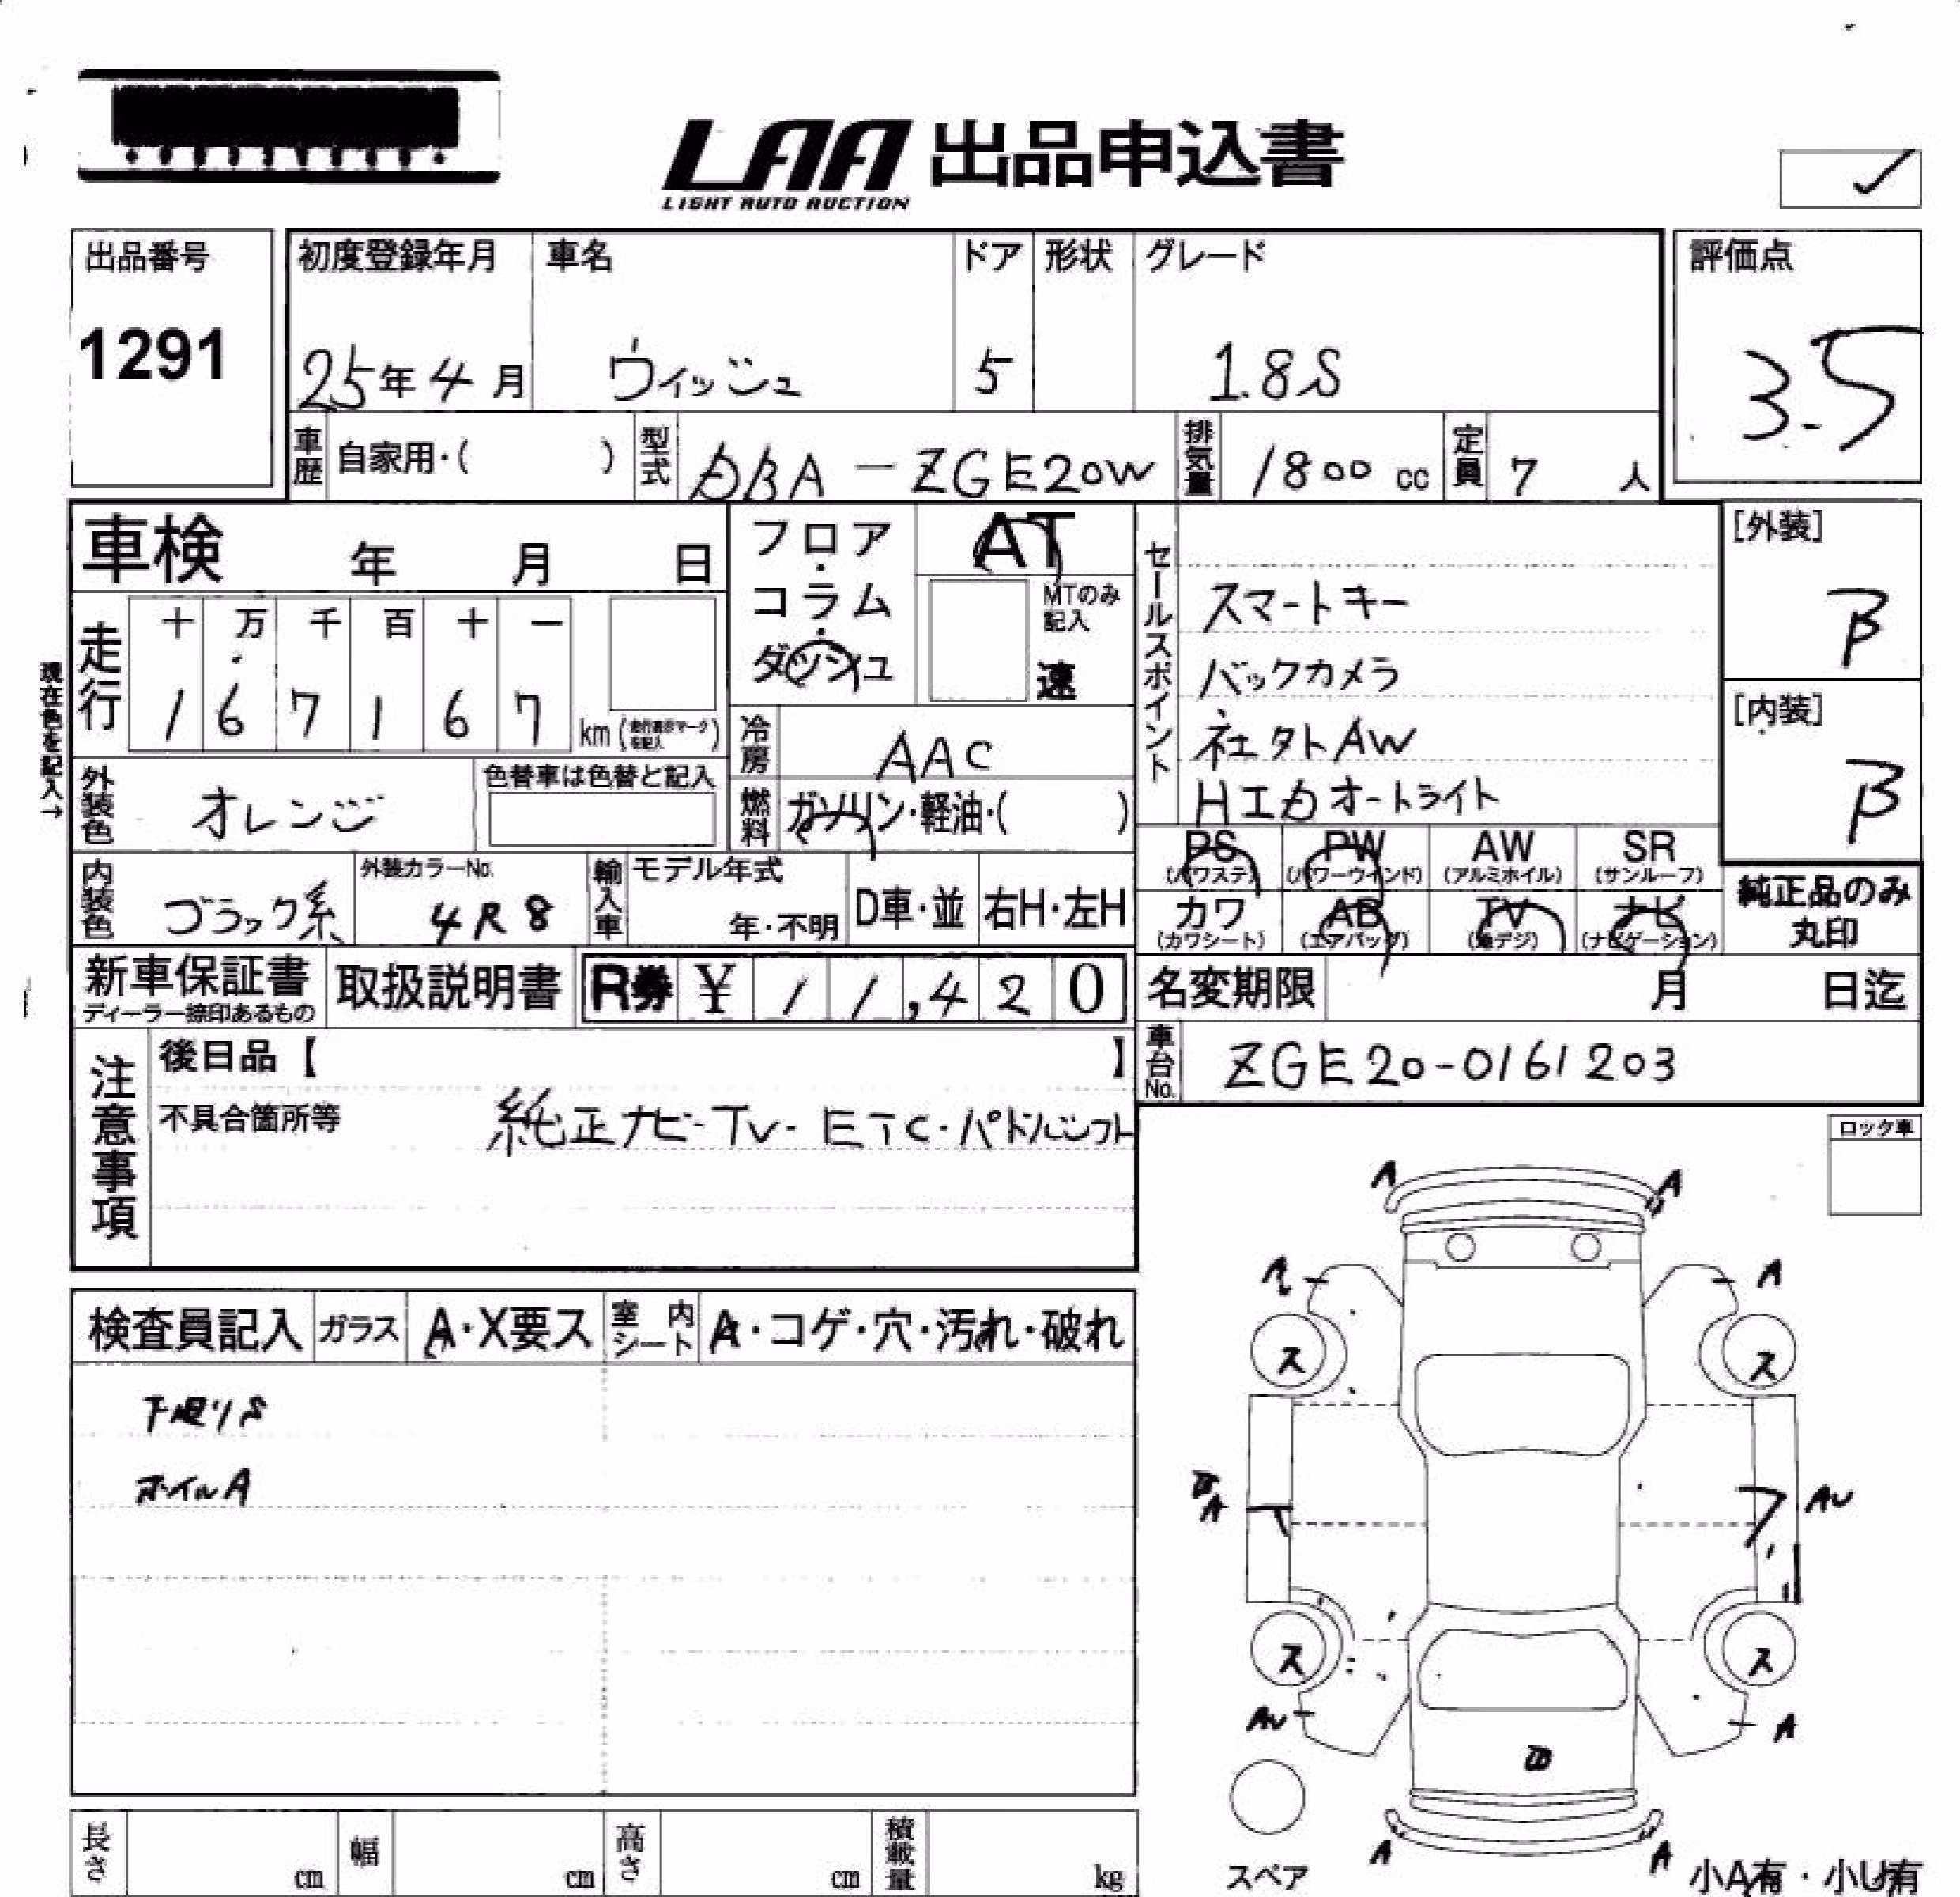 LAA 出品申込書
LIGHT AUTO AUCTION
出品番号
1291
初度登録年月 車名 ドア 形状 グレード
25年4月 ウィッシュ 5 1.8S
評価点
3.5
車歴 自家用・( ) 型式 DBA-ZGE20W 排気量 1800 cc 定員 7 人
車検 年 月 日
フロア・コラム・ダッシュ
AT
MTのみ記入
速
セールスポイント
スマートキー
バックカメラ
社外AW
HIDオートライト
[外装]
B
[内装]
B
現在色を記入→
走行 十 万 千 百 十 一
1 6 7 1 6 7 km (走行表示マークを記入)
冷房 AAC
外装色 オレンジ 色替車は色替と記入
燃料 ガソリン・軽油・( )
PS (パワステ) PW (パワーウインド) AW (アルミホイル) SR (サンルーフ)
カワ (カワシート) AB (エアバッグ) TV (地デジ) ナビ (ナビゲーション)
純正品のみ丸印
内装色 ブラック系 外装カラーNo. 4R8 輸入車 モデル年式 年・不明 D車・並 右H・左H
新車保証書 ディーラー捺印あるもの 取扱説明書 R券 ¥ 11,420
名変期限 月 日迄
車台No. ZGE20-0161203
注意事項
後日品【 】
不具合箇所等 純正ナビ-TV-ETC・パドルシフト
ロック車
検査員記入 ガラス A・X要ス 室内シート A・コゲ・穴・汚れ・破れ
下廻りS
ホイルA
A A
A A
ス ス
A AU
ス ス
AU A
A A
スペア
小A有・小U有
長さ cm 幅 cm 高さ cm 積載量 kg